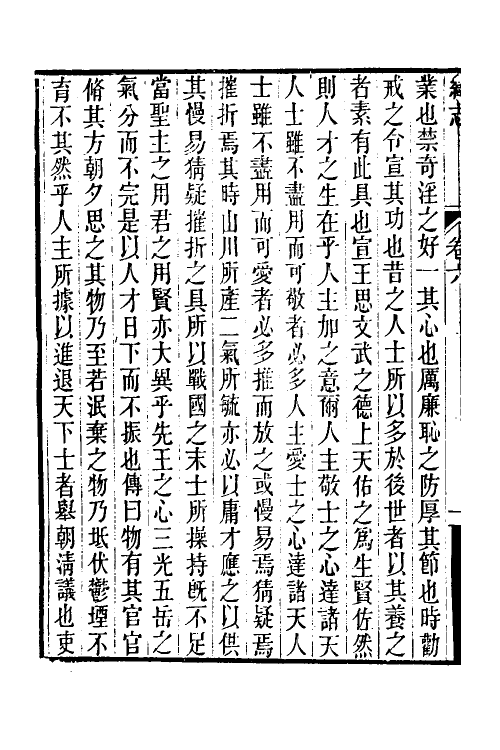 業也禁奇淫之好一其心也厲廉恥之防厚其節也時勸
戒之令宣其功也昔之人士所以多於後世者以其養之
者素有此具也宣王思文武之德上天佑之爲生賢佐然
則人才之生在乎人主加之意爾人主敬士之心達諸天
人士雖不盡用而可敬者必多人主愛士之心達諸天人
士雖不盡用而可愛者必多推而放之或慢易焉猜疑焉
摧折焉其時山川所產二氣所毓亦必以庸才應之以供
其慢易猜疑摧折之具所以戰國之末士所操持旣不足
當聖主之用君之用賢亦大異乎先王之心三光五岳之
氣分而不完是以人才日下而不振也傳曰物有其官官
脩其方朝夕思之其物乃至若泯棄之物乃坻伏鬱堙不
育不其然乎人主所據以進退天下士者舉朝淸議也吏
卷六